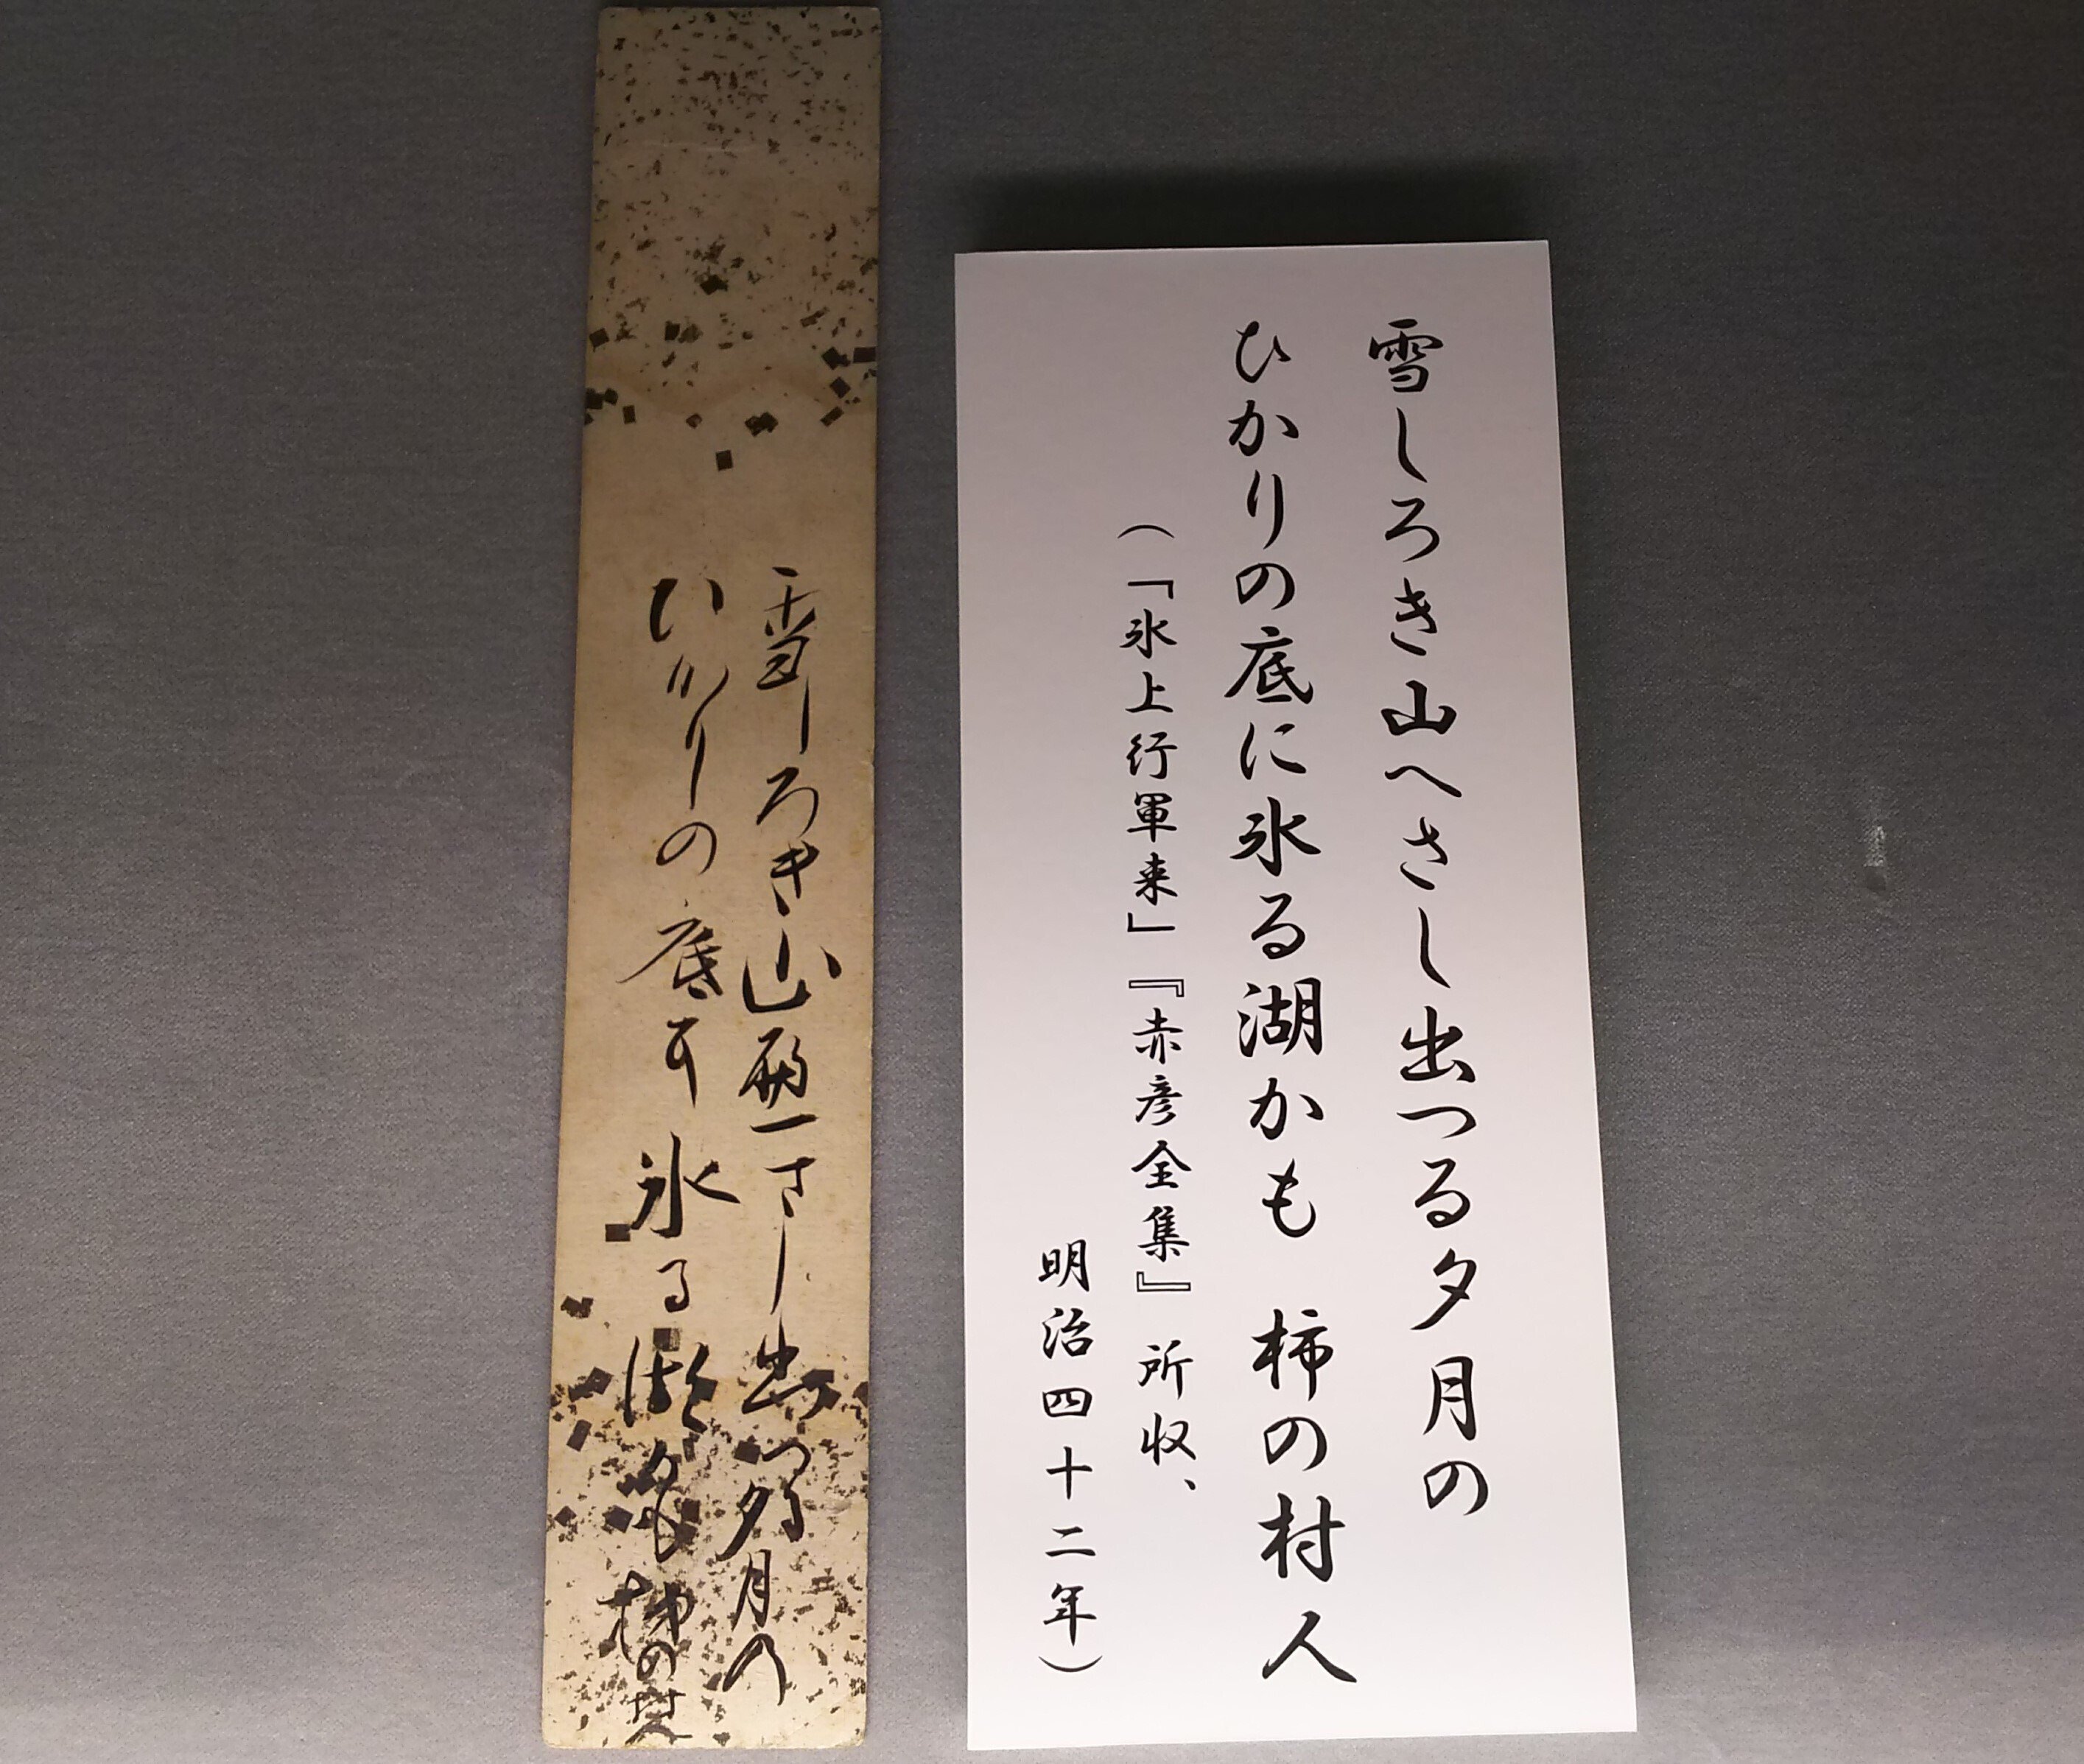 雪しろき山へさし出つる夕月の
ひかりの底に氷る湖かも　柿の村人
（「氷上行軍来」『赤彦全集』所収、
明治四十二年）
雪しろき山へさし出つる夕月の
ひかりの底に氷る湖かも 柿の村人